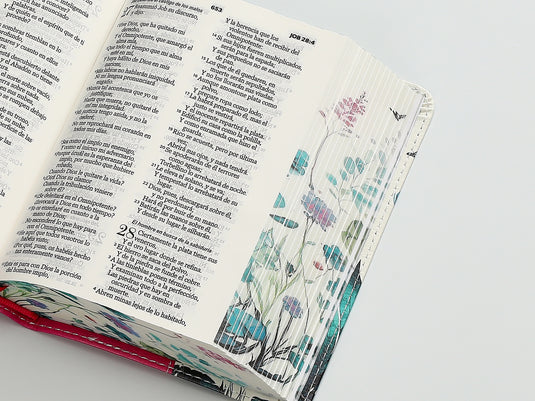 653
JOB 28:4
Reasumió Job su discurso,
y dijo:
Vive Dios, que ha quitado mi
derecho,
Y el Omnipotente, que amargó el
alma mía,
Que todo el tiempo que mi alma
esté en mí,
Y haya hálito de Dios en mis
narices,
Mis labios no hablarán iniquidad,
Ni mi lengua pronunciará
engaño.
Nunca tal acontezca que yo os
justifique;
Hasta que muera, no quitaré de
mí mi integridad.
Mi justicia tengo asida, y no la
cederé;
No me reprochará mi corazón en
todos mis días.
Sea como el impío mi enemigo,
Y como el inicuo mi adversario.
Porque ¿cuál es la esperanza del
impío, por mucho que hubiere
robado,
Cuando Dios le quitare la vida?
¿Oirá Dios su clamor
Cuando la tribulación viniere
sobre él?
¿Se deleitará en el Omnipotente?
¿Invocará a Dios en todo
tiempo?
Yo os enseñaré en cuanto a la
mano de Dios;
No esconderé lo que hay para
con el Omnipotente.
He aquí que todos vosotros lo
habéis visto;
¿Por qué, pues, os habéis hecho
tan enteramente vanos?
Esta es para con Dios la porción
del hombre impío,
Y la herencia que los
violentos han de recibir del
Omnipotente:
14 Si sus hijos fueren multiplicados,
serán para la espada;
Y sus pequeños no se saciarán
de pan.
15 Los que de él quedaren, en
muerte serán sepultados,
Y no los llorarán sus viudas.
16 Aunque amontone plata como
polvo,
Y prepare ropa como lodo;
17 La habrá preparado él, mas el
justo se vestirá,
Y el inocente repartirá la plata.
18 Edificó su casa como la polilla,
Y como enramada que hizo el
guarda.
19 Rico se acuesta, pero por última
vez;
Abrirá sus ojos, y nada tendrá.
20 Se apoderarán de él terrores
como aguas;
Torbellino lo arrebatará de noche.
21 Le eleva el solano, y se va;
Y tempestad lo arrebatará de su
lugar.
22 Dios, pues, descargará sobre él,
y no perdonará;
Hará él por huir de su mano.
23 Batirán las manos sobre él,
Y desde su lugar le silbarán.
El hombre en busca de la sabiduría
28 Ciertamente la plata tiene sus
veneros,
Y el oro lugar donde se refina.
2 El hierro se saca del polvo,
Y de la piedra se funde el cobre.
3 A las tinieblas ponen término,
Y examinan todo a la perfección,
Las piedras que hay en
oscuridad y en sombra de
muerte.
4 Abren minas lejos de lo habitado,